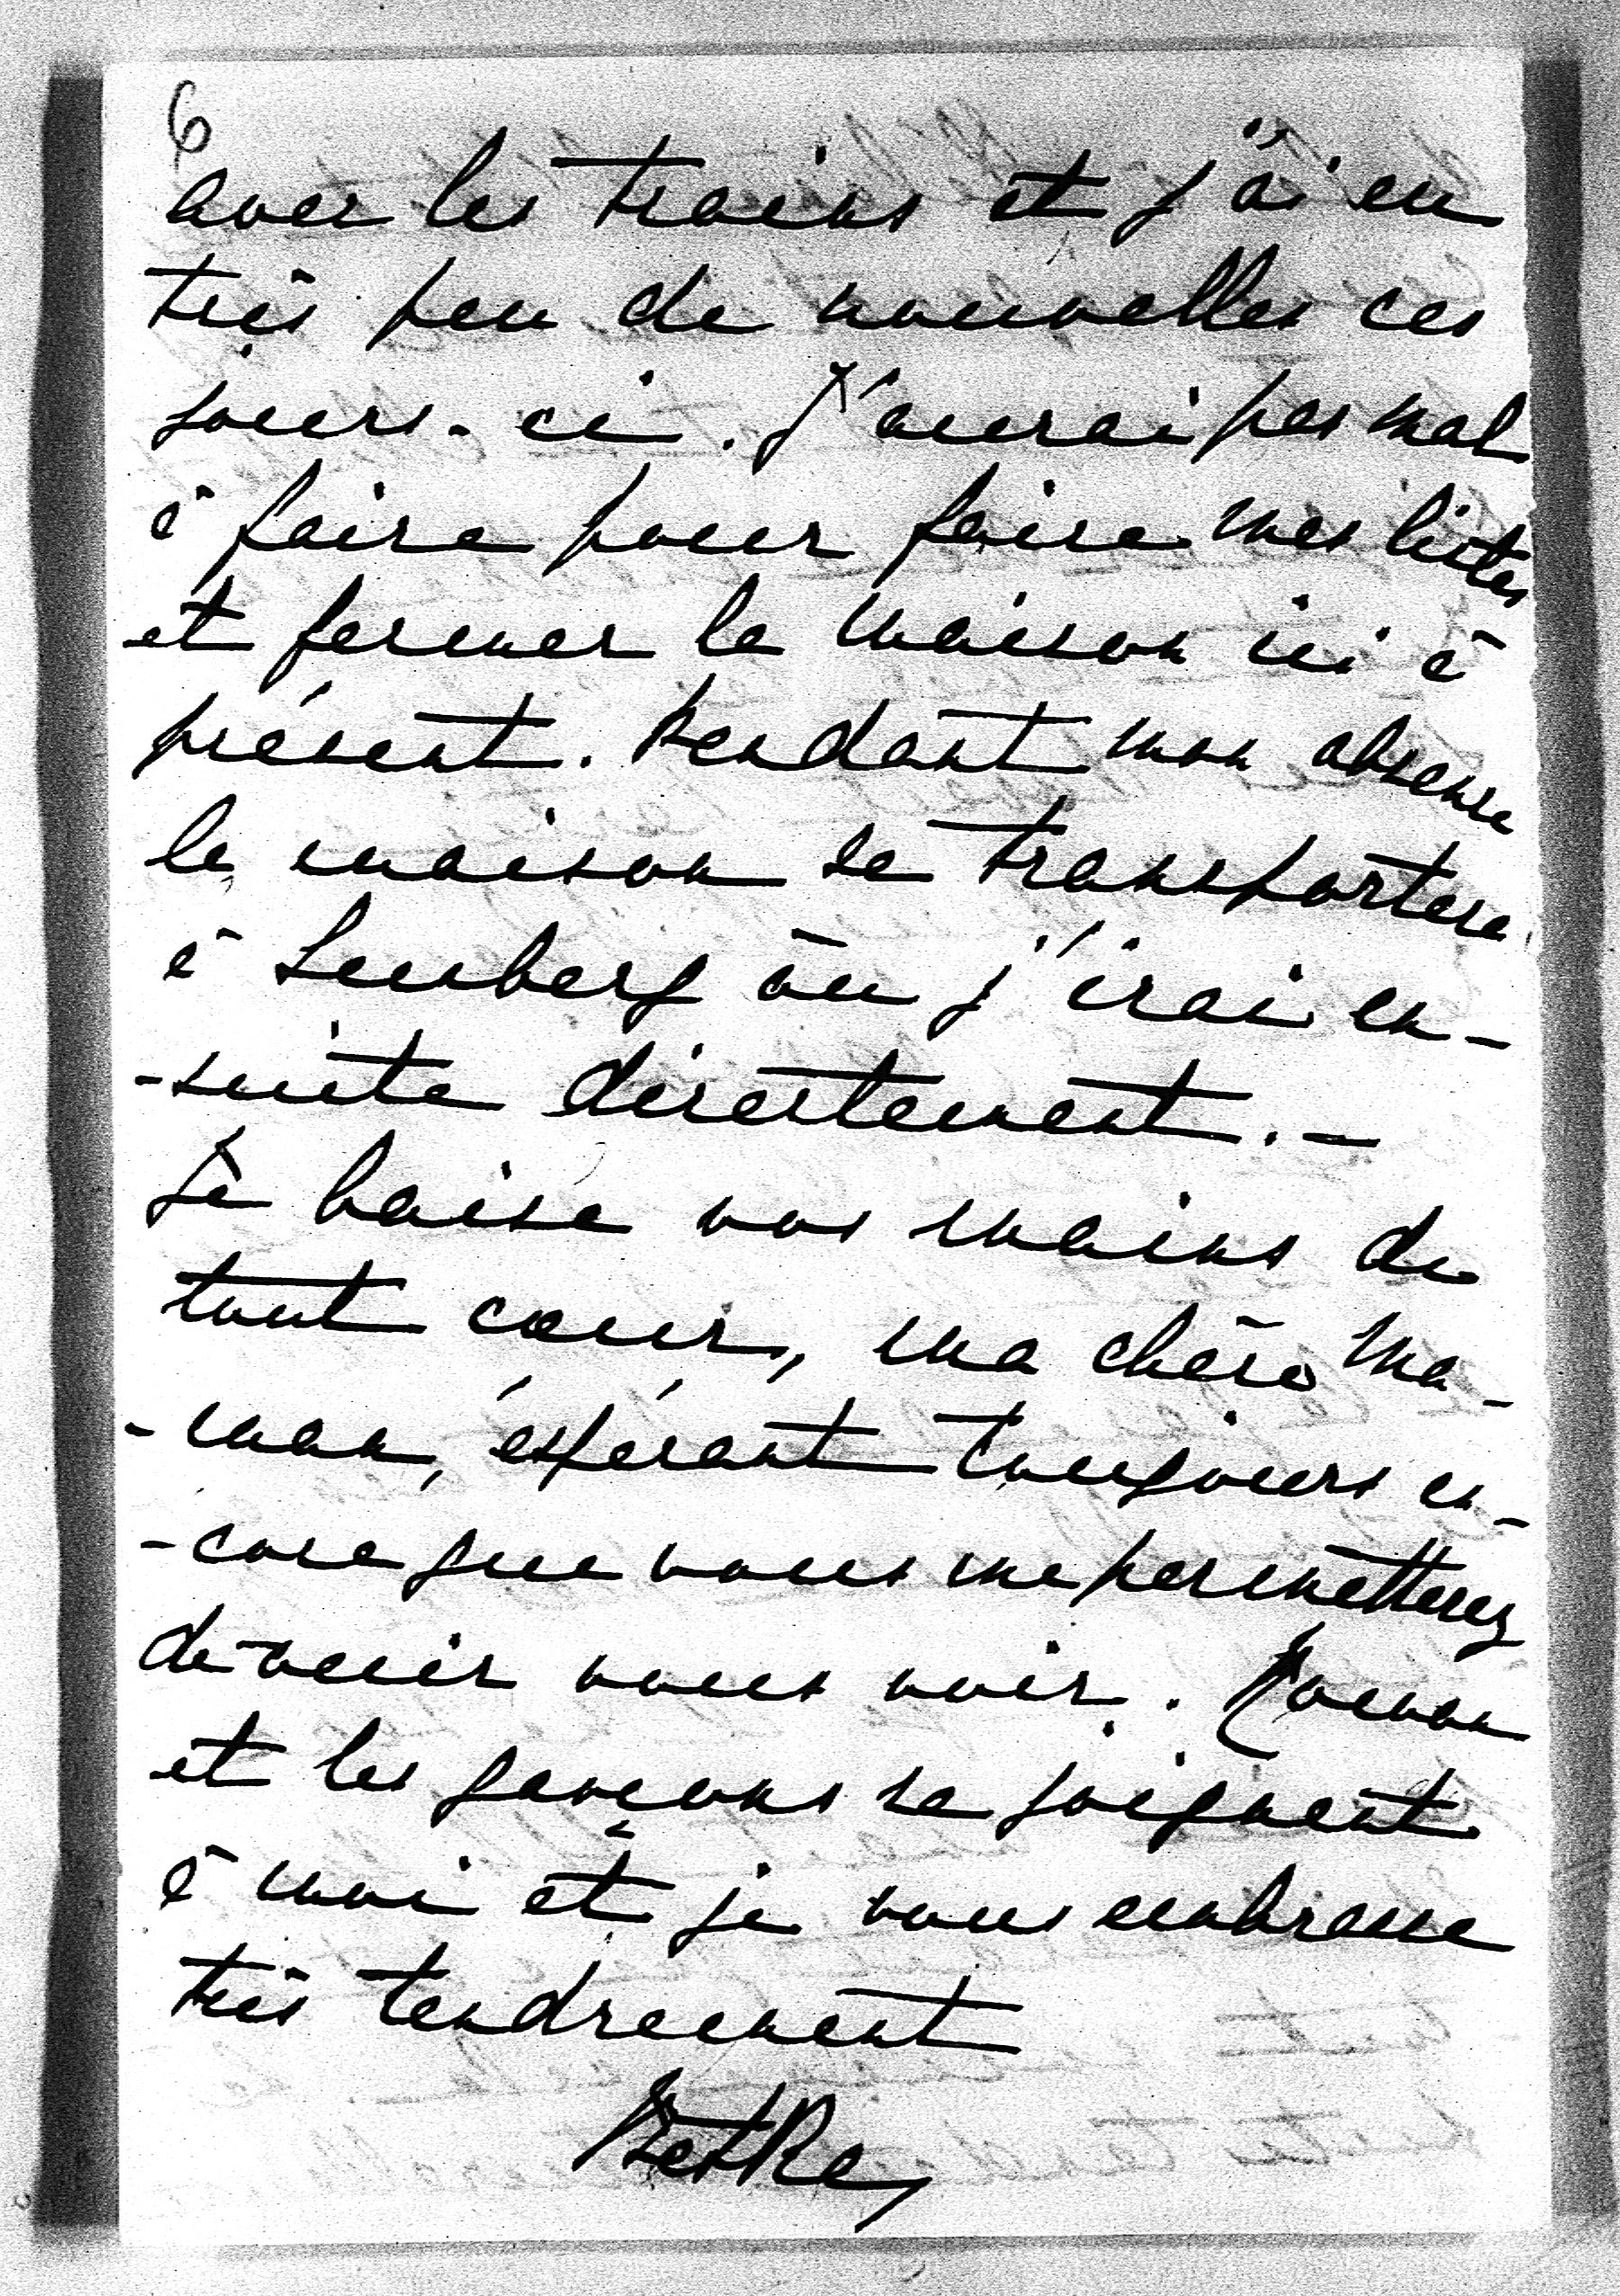 6
avec les trains et j'ai eu
très peu de nouvelles ces
jours-ci. J'aurai pas mal
à faire pour faire mes listes
et fermer la maison ici à
présent. Pendant mon absence
la maison se transportera
à Lemberg où j'irai en-
-suite directement. –
Je baise vos mains de
tout cœur, ma chère Ma-
-man, éspérant toujours en-
-core que vous me permetterez
de venir vous voir.
et les garçons se joignent
à moi et je vous embrasse
très tendrement
Betka